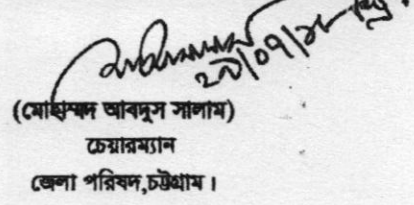 ২৯/০৭/১৮
(মোহাম্মদ আবদুস সালাম)
চেয়ারম্যান
জেলা পরিষদ,চট্টগ্রাম।